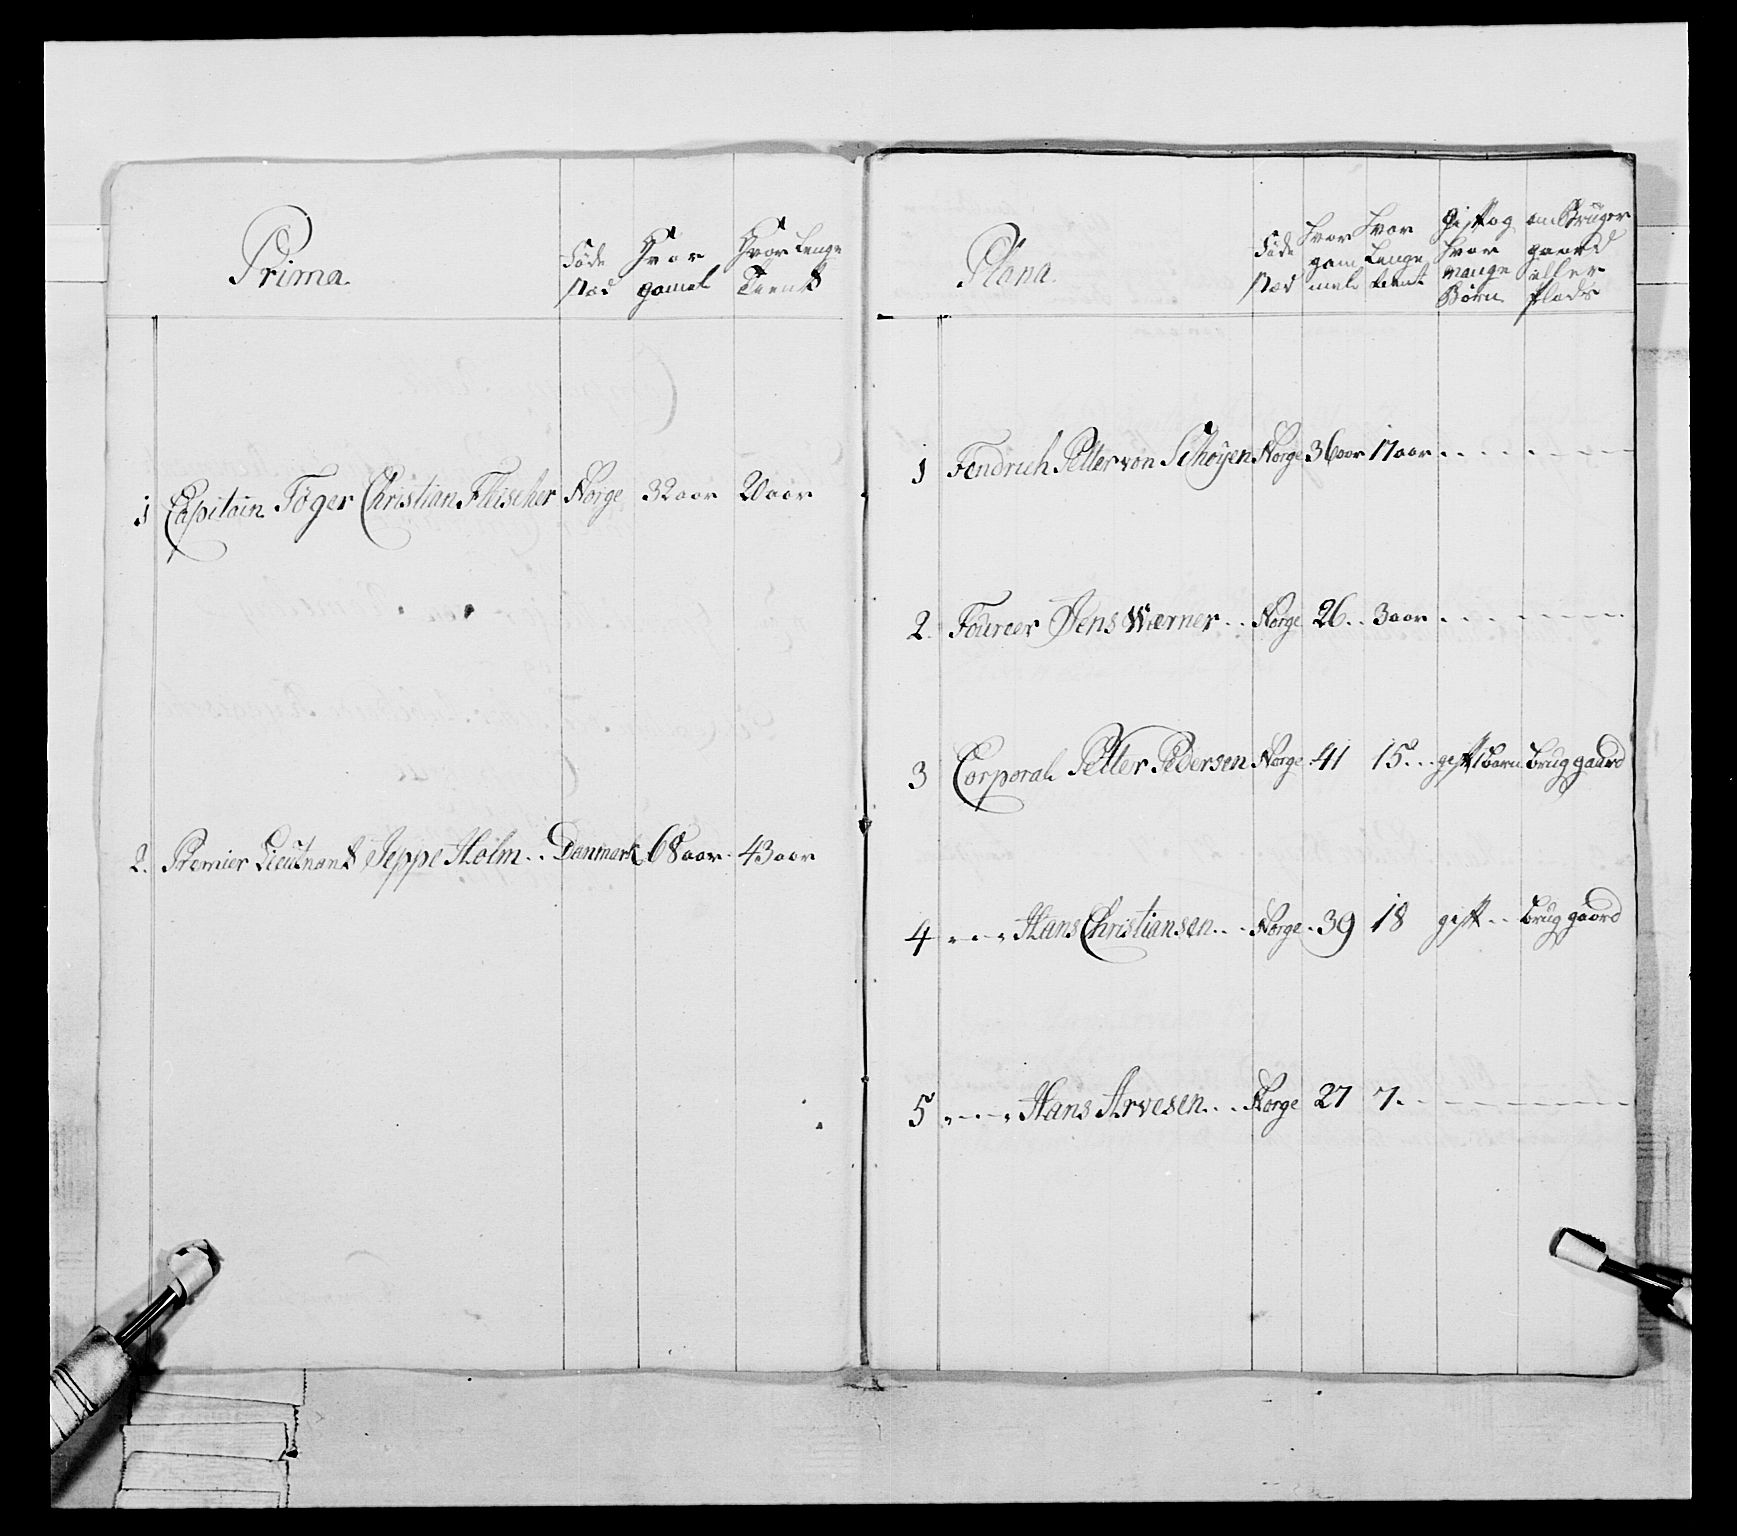 Prima.
Føde Stæd
Hvor gamel
Hvor Lenge Tient
1 Capitain Tøger Christian Fleischer Norge 32 aar 20 aar
2. Premier Lieutnant Jeppe Holm .. Danmark 68 aar. 43 aar
Plana.
Føde Stæd
hvor gam mel
hvor Lenge tient
Gift og hvor mange Børn
om Bruger gaard eller Plads
1 Fendrich Petter von Schøyen Norge 36 aar 17 aar . . . . . .
2. Foureer Jens Wærner .. Norge 26 .. 3 aar . . . . . .
3 Corporal Petter Pedersen Norge 41 15 .. gift 1 Barn Brug gaard
4 " - - " Hans Christiansen .. . Norge . 39 18 gift .. Brug gaard
5 " - - - " Hans Arvesen .. . Norge 27 7 . - - - - -